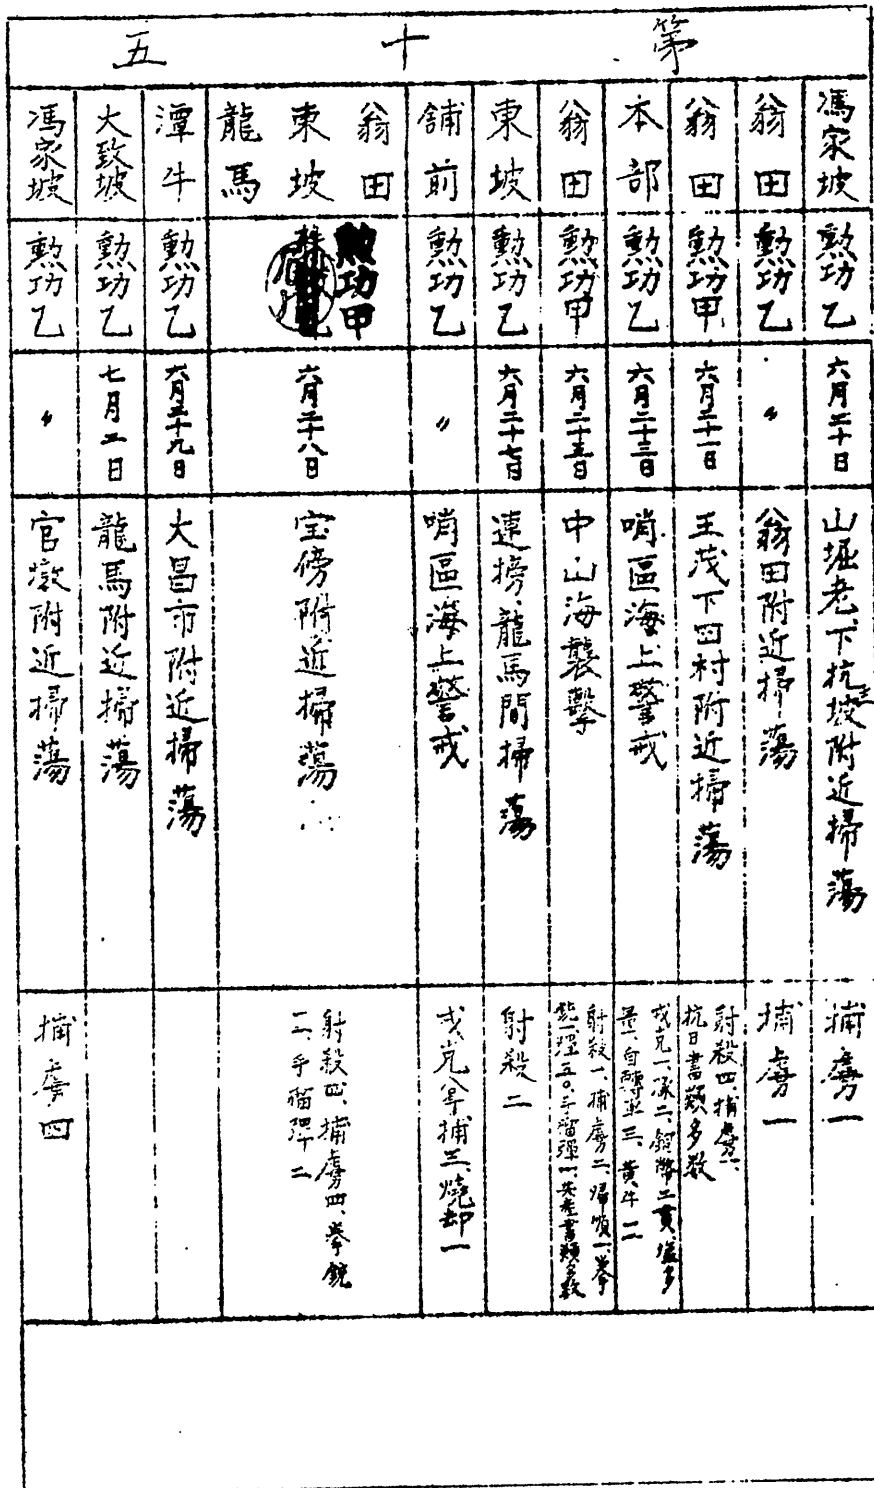 第十五
馮家坡
勲功乙
六月二十日
山堀老下抗坡附近掃蕩
捕虜一
翁田
勲功乙
〃
翁田附近掃蕩
捕虜一
翁田
勲功甲
六月二十一日
王茂下四村附近掃蕩
射殺四、捕虜一、
抗日書類多数
本部
勲功乙
六月二十三日
哨區海上警戒
戎克一、豚二、銅幣二貫、塩多
量、自轉車三、黄牛二
翁田
勲功甲
六月二十五日
中山海襲撃
射殺一、捕虜二、帰順一、拳
銃一、弾五〇、手榴弾一、共産書類多数
東坡
勲功乙
六月二十七日
連榜、龍馬間掃蕩
射殺二
舖前
勲功乙
〃
哨區海上警戒
戎克拿捕三、燒却一
翁田
東坡
龍馬
勲功甲
六月二十八日
宝傍附近掃蕩
射殺四、捕虜四、拳銃
二、手榴弾二
潭牛
勲功乙
六月二十九日
大昌市附近掃蕩
大致坡
勲功乙
七月二日
龍馬附近掃蕩
馮家坡
勲功乙
〃
官墩附近掃蕩
捕虜四